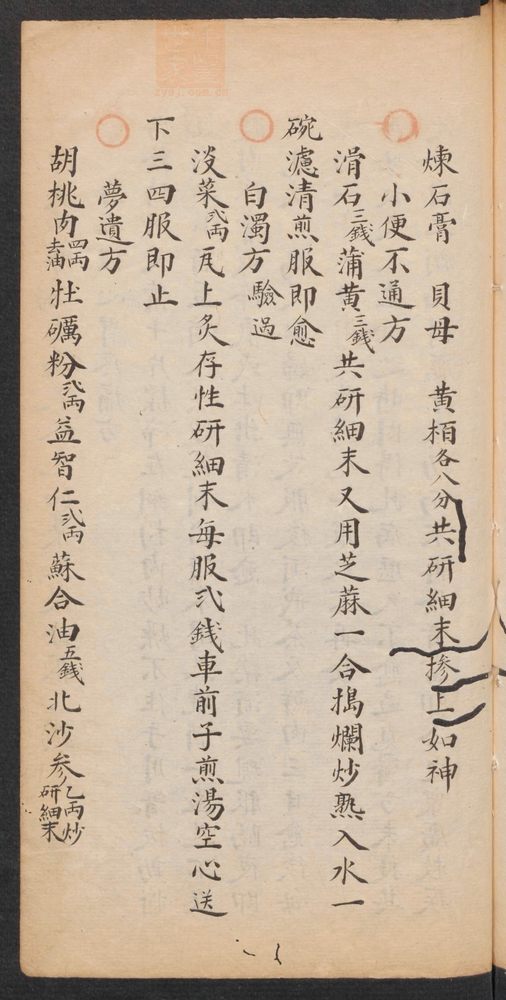 煉石膏 貝母 黃栢各八分共研細末掺上如神
小便不通方
滑石三錢蒲黃三錢共研細末又用芝蔴一合搗爛炒熟入水一
碗濾清煎服即愈
白濁方 驗過
淡菜弍兩瓦上炙存性研細末每服弍錢車前子煎湯空心送
下三四服即止
夢遺方
胡桃肉四兩去油牡礪粉弍兩益智仁弍兩蘇合油五錢北沙參乙兩炒研細末